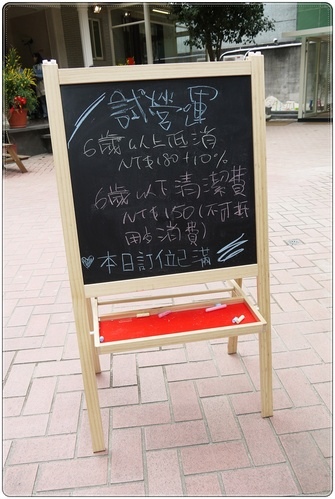 試營運
6歲以上低消
NT$180+10%
6歲以下清潔費
NT$150(不可抵
用消費)
本日訂位已滿